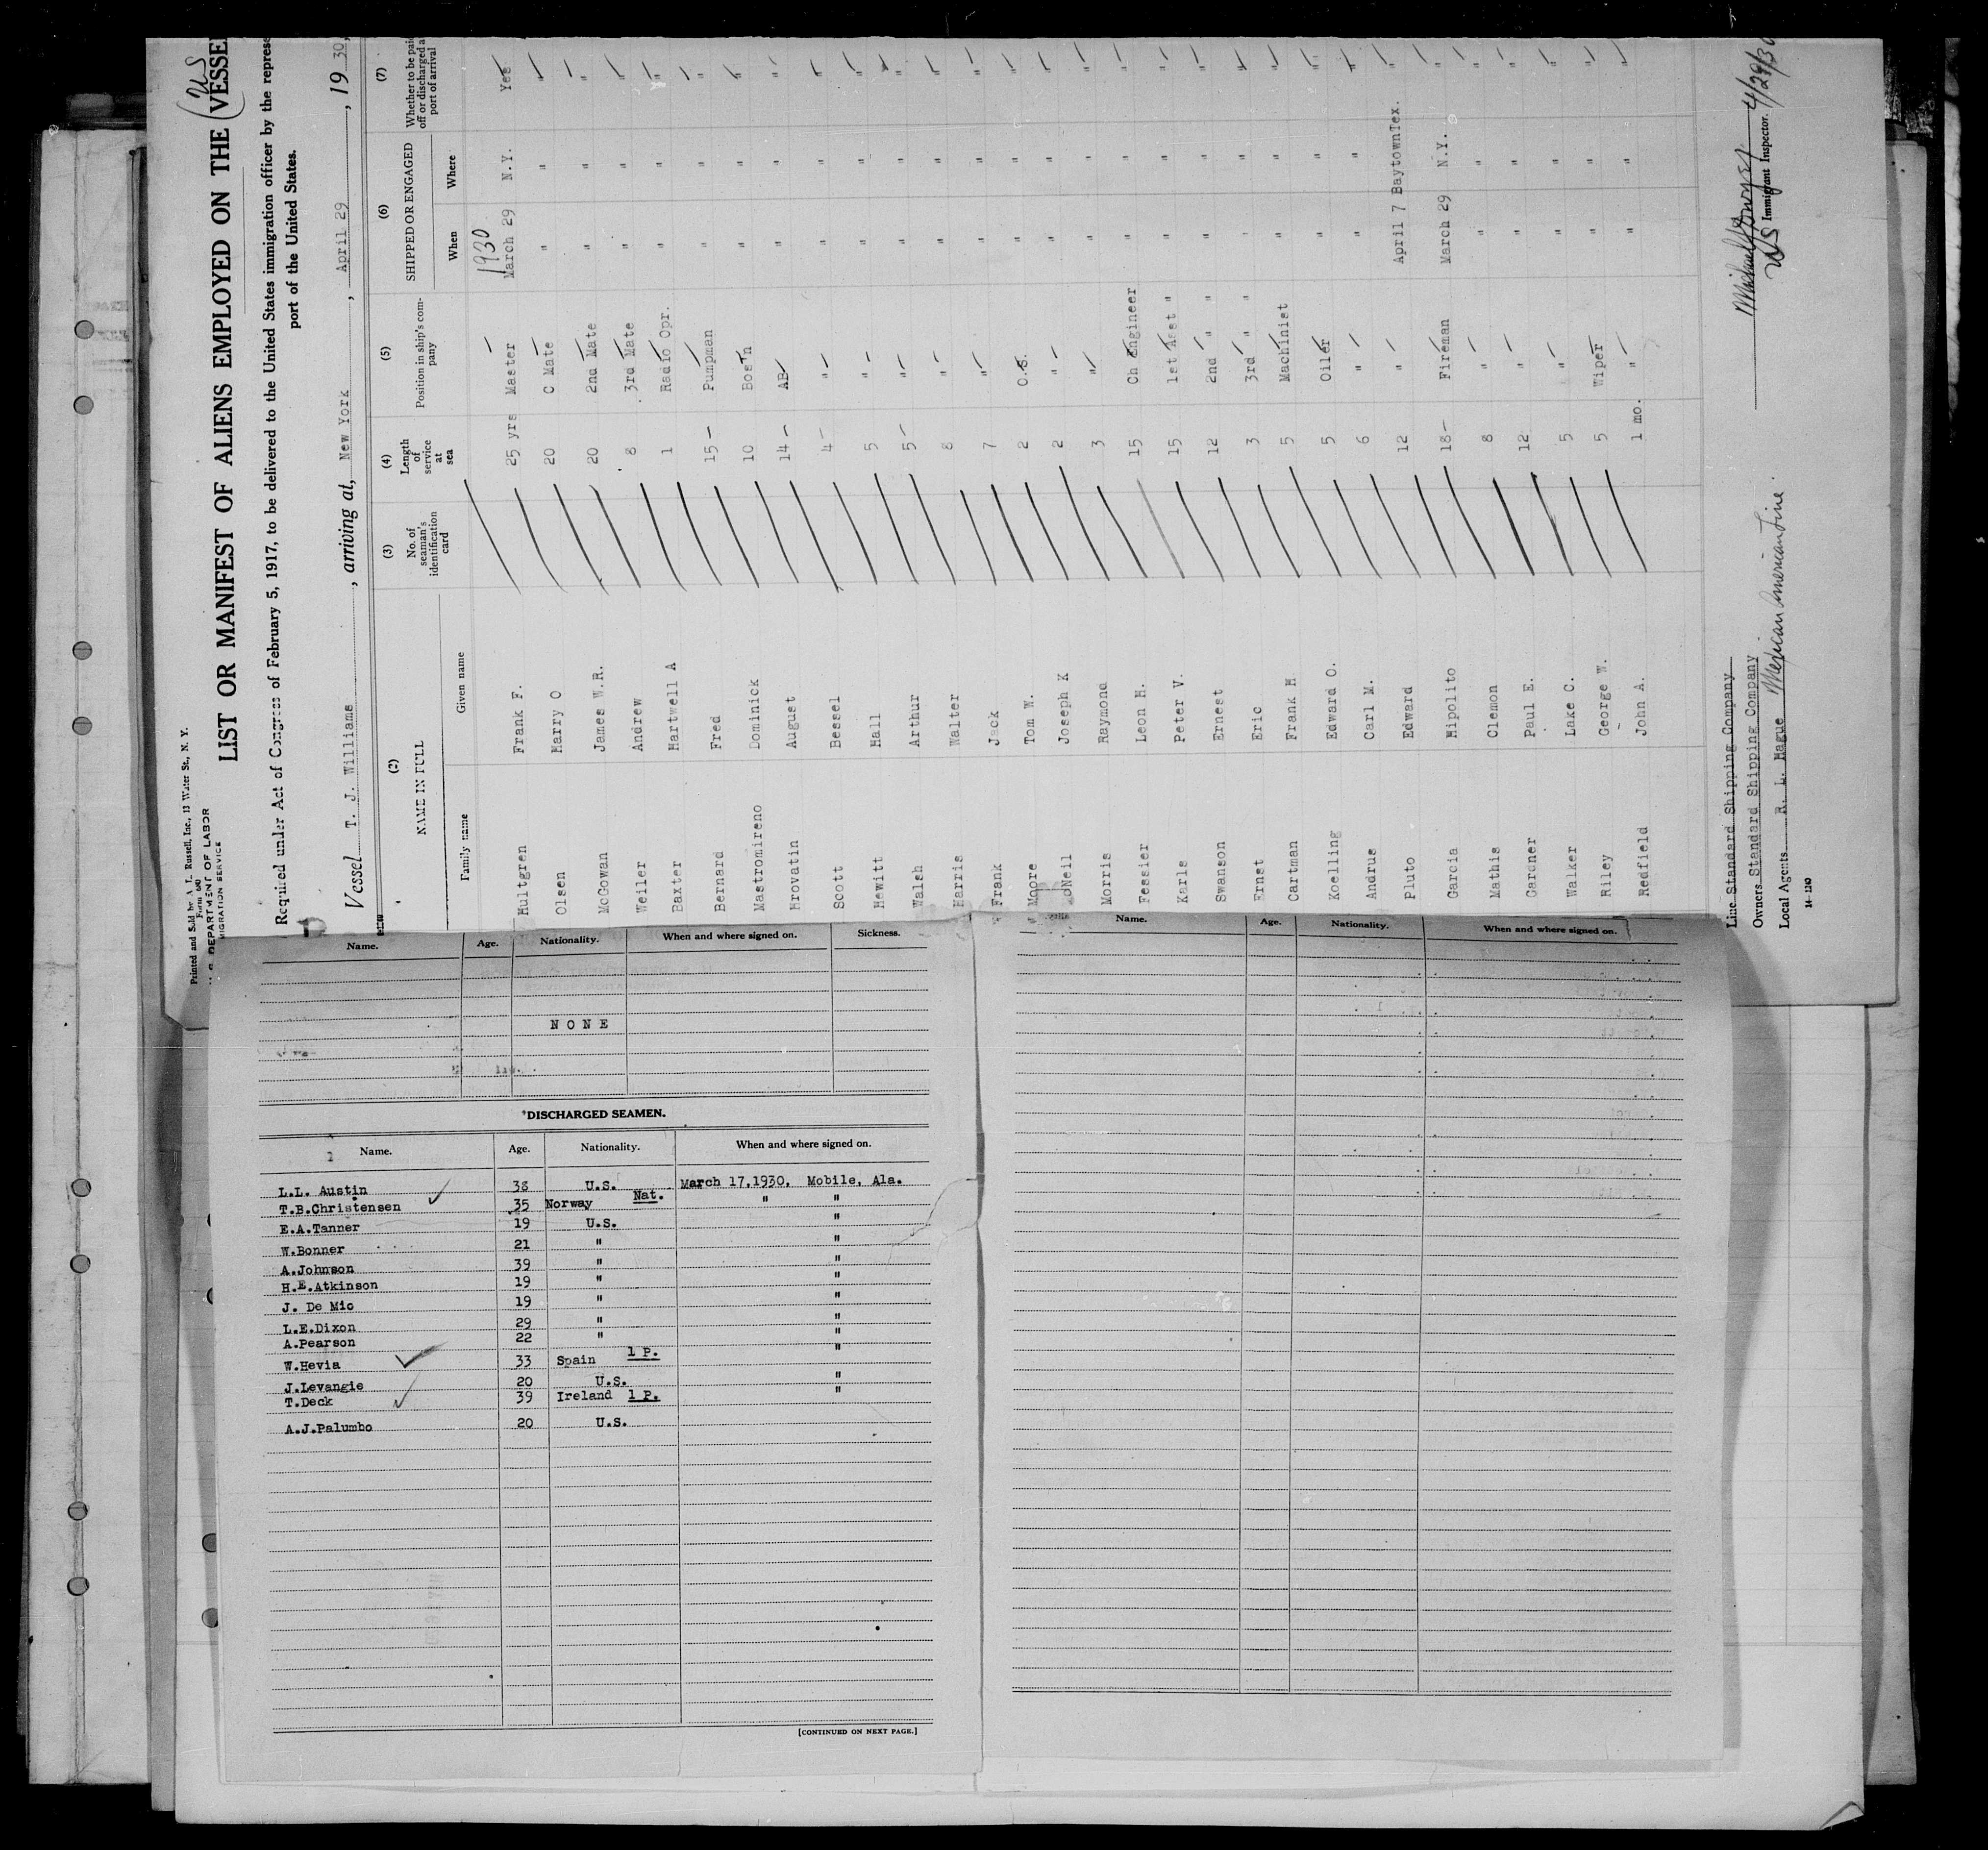 Printed and Sold by A. L. Russell, Inc., 13 Water St., N. Y.
Form 680
U. S. DEPARTMENT OF LABOR
IMMIGRATION SERVICE
LIST OR MANIFEST OF ALIENS EMPLOYED ON THE VESSEL
US
Required under Act of Congress of February 5, 1917, to be delivered to the United States immigration officer by the repres
port of the United States.
Vessel T. J. Williams, arriving at, New York, April 29, 19 30,
(2) (3) (4) (5) (6) (7)
NAME IN FULL
Family name Given name
No. of seaman's identification card
Length of service at sea
Position in ship's company
SHIPPED OR ENGAGED
When Where
Whether to be paid off or discharged at port of arrival
1930
Hultgren Frank F. 25 yrs Master March 29 N.Y. Yes
Olsen Harry O 20 C Mate " " "
McGowan James W.R. 20 2nd Mate " " "
Weiler Andrew 8 3rd Mate " " "
Baxter Hartwell A 1 Radio Opr. " " "
Bernard Fred 15 Pumpman " " "
Mastromireno Dominick 10 Bos'n " " "
Hrovatin August 14 AB " " "
Scott Bessel 4 " " " "
Hewitt Hall 5 " " " "
Walsh Arthur 5 " " " "
Harris Walter 8 " " " "
Frank Jack 7 " " " "
Moore Tom W. 2 O.S. " " "
Neil Joseph K 2 " " " "
Morris Raymond 3 " " " "
Fessler Leon H. 15 Ch Engineer " " "
Karls Peter V. 15 1st Asst " " " "
Swanson Ernest 12 2nd " " " " "
Ernst Eric 3 3rd " " " " "
Cartman Frank H. 5 Machinist " " "
Koelling Edward O. 5 Oiler " " "
Andrus Carl M. 6 " " " "
Pluto Edward 12 " April 7 Baytown Tex. "
Garcia Hipolito 18 Fireman March 29 N.Y. "
Mathis Clemon 8 " " " "
Gardner Paul E. 12 " " " "
Walker Lake C. 5 " " " "
Riley George W. 5 Wiper " " "
Redfield John A. 1 mo. " " " "
Line Standard Shipping Company
Owners Standard Shipping Company
Local Agents R. L. Hague Mexican American Line.
14—1240
US Immigrant Inspector. 4/29/30
Name. Age. Nationality. When and where signed on. Sickness.
NONE
*DISCHARGED SEAMEN.
Name. Age. Nationality. When and where signed on.
L.L. Austin 38 U.S. March 17,1930, Mobile, Ala.
T.B.Christensen 35 Norway Nat. " "
E.A.Tanner 19 U.S. "
W.Bonner 21 " "
A.Johnson 39 " "
H.E.Atkinson 19 " "
J. De Mio 19 " "
L.E.Dixon 29 " "
A.Pearson 22 " "
W.Hevia 33 Spain 1 P. "
J.Levangie 20 U.S. "
T.Deck 39 Ireland 1 P. "
A.J.Palumbo 20 U.S.
[CONTINUED ON NEXT PAGE.]
Name. Age. Nationality. When and where signed on.